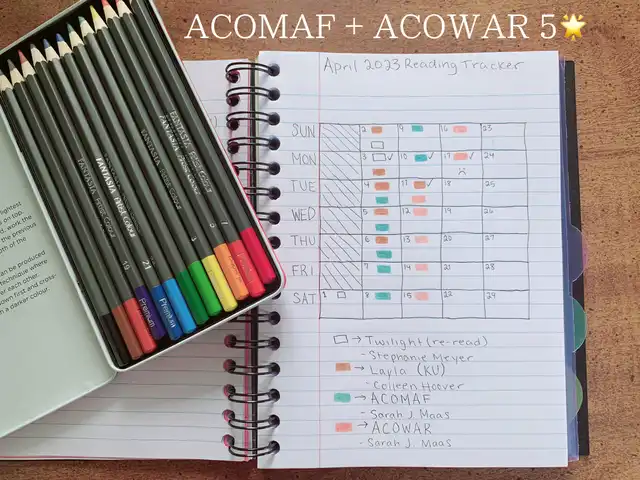 ACOMAF + ACOWAR 5🌟
April 2023 Reading Tracker
SUN 2 9 16 23
MON 3 ✓ 10 ✓ 17 ✓ 24
TUE 4 11 ✓ 18 25
WED 5 12 19 26
THU 6 13 20 27
FRI 7 14 21 28
SAT 1 8 15 22 29
→ Twilight (re-read)
- Stephanie Meyer
→ Layla (KU)
- Colleen Hoover
→ ACOMAF
- Sarah J. Maas
→ ACOWAR
- Sarah J. Maas
FANTASIA
FANTASIA
FANTASIA
FANTASIA
19
21
Premium
Premium
lightest
on top.
work the
the previous
th of the
can be produced
technique where
er each other.
down first and cross-
n a darker colour